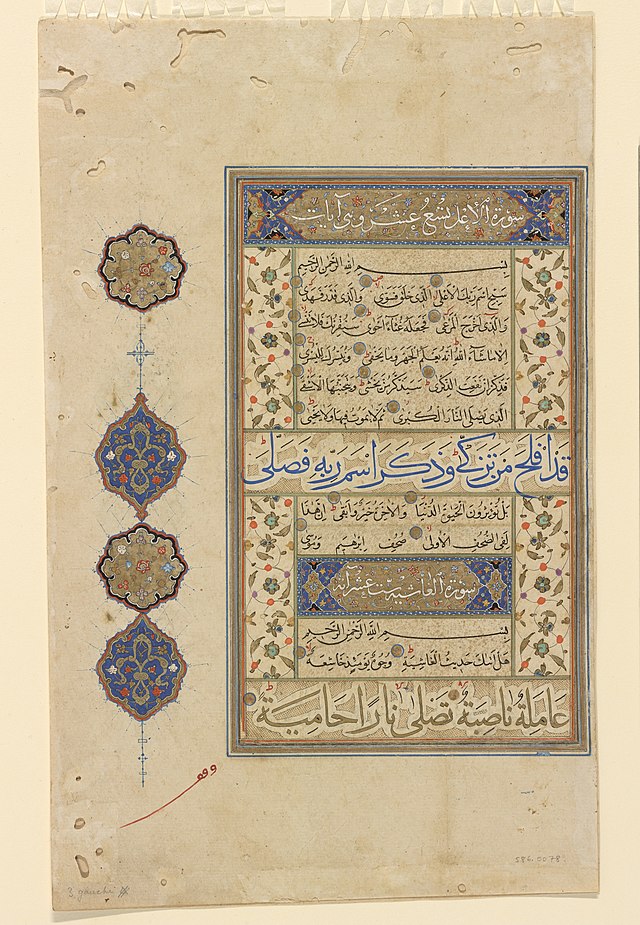 سورة الاعلى تسع عشر وهي آيات
بسم الله الرحمن الرحيم
سبح اسم ربك الاعلى الذي خلق فسوى والذي قدر فهدى
والذي اخرج المرعى فجعله غثاء احوى سنقرئك فلا تنسى
الا ما شاء الله انه يعلم الجهر وما يخفى ونيسرك لليسرى
فذكر ان نفعت الذكرى سيذكر من يخشى ويتجنبها الاشقى
الذي يصلى النار الكبرى ثم لا يموت فيها ولا يحيى
قد افلح من تزكى وذكر اسم ربه فصلى
بل تؤثرون الحيوة الدنيا والآخرة خير وابقى ان هذا
لفى الصحف الاولى صحف ابرهيم وموسى
سورة الغاشية ست عشر آية
بسم الله الرحمن الرحيم
هل اتيك حديث الغاشية وجوه يومئذ خاشعة
عاملة ناصبة تصلى نارا حامية
وقف
3 gauche
S86.0078